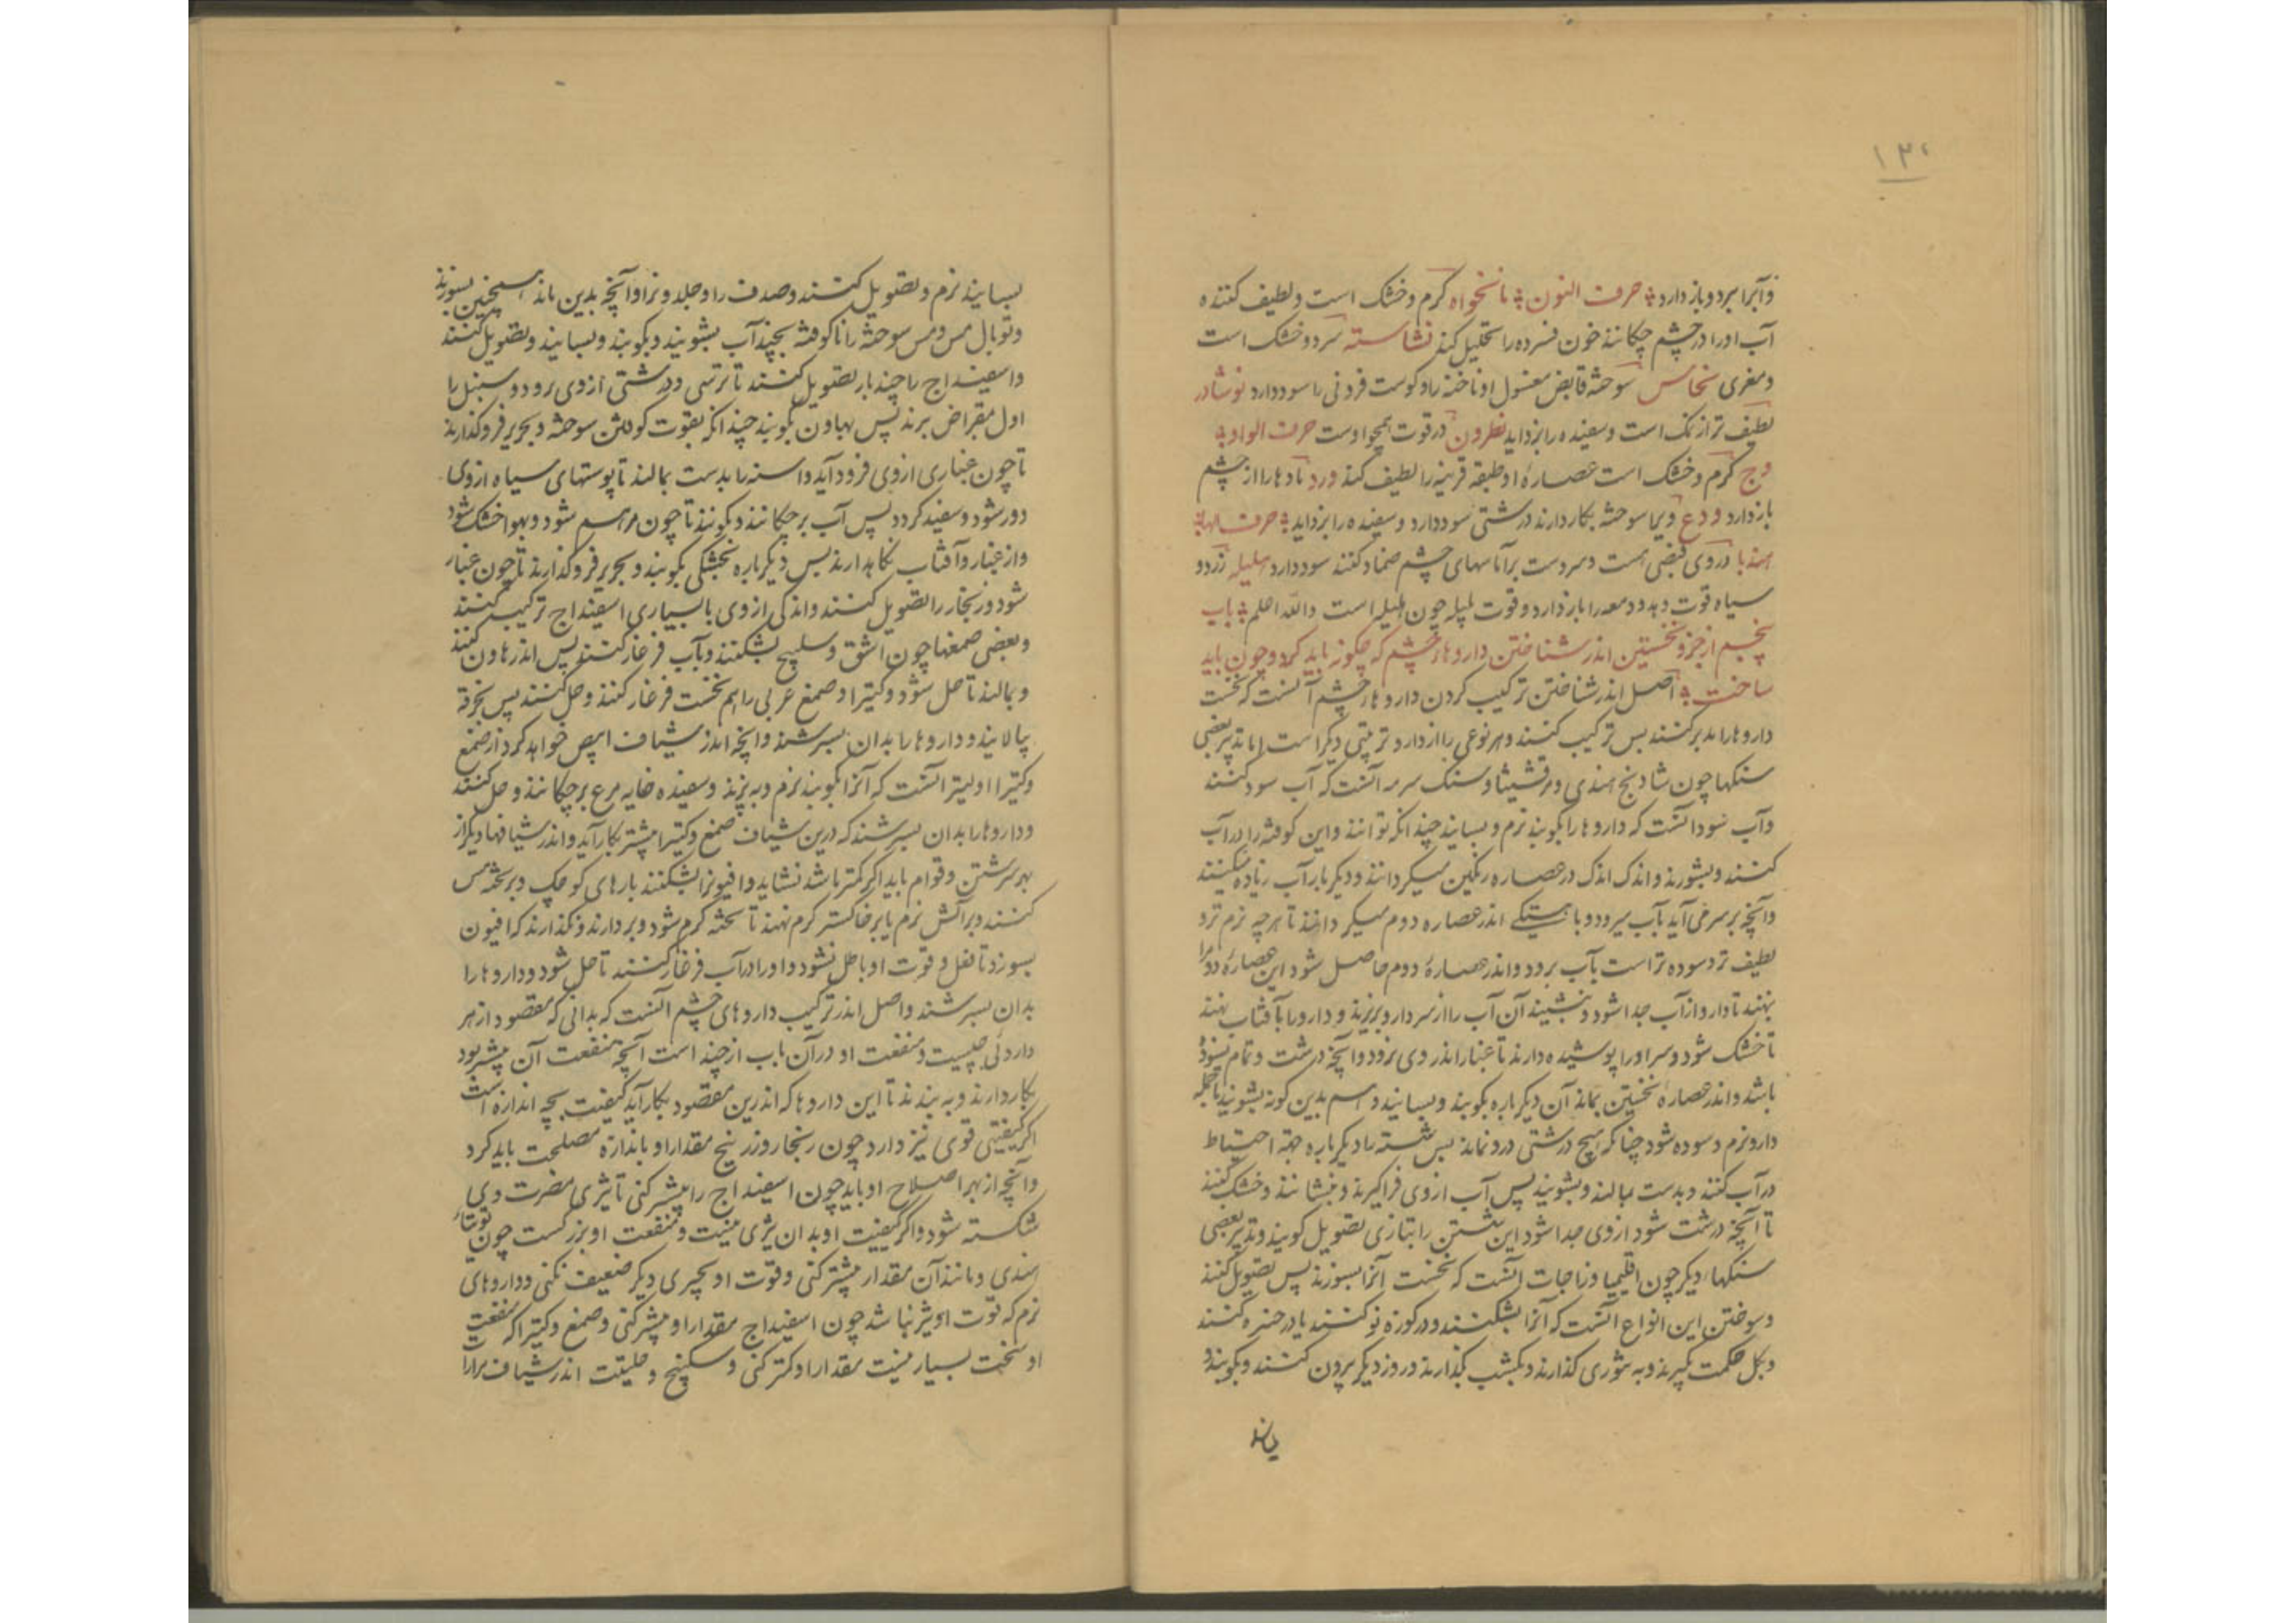 ۱۳۰
و آبرا ببرد و باز دارد حرف النون نانخواه گرم و خشک است و لطیف کننده
آب او را در چشم چکانند خون فسرده را تحلیل کند نشاسته سرد و خشک است
و مغری نحاس سوخته قابض مغسول او ناخنه را و گوشت فزونی را سود دارد نوشادر
لطیف تر از نمک است و سفیده را بزداید نطرون در قوت همچو اوست حرف الواو
وج گرم و خشک است عصاره او طبقه قرنیه را لطیف کند ورد مادها را از چشم
باز دارد ودع سوخته بکار دارند درشتی سود دارد و سفیده را بزداید حرف الهاء
هندبا در وی قبضی هست و سردست بر آماسهای چشم ضماد کنند سود دارد هلیله زرد و
سیاه قوت دهد و دمعه را باز دارد و قوت بلیله چون هلیله است والله اعلم باب
پنجم از جزو نخستین اندر شناختن داروهاء چشم که چگونه باید کرد و چون باید
ساخت اصل اندر شناختن ترکیب کردن داروهاء چشم آنست که نخست
داروها را مدبر کنند پس ترکیب کنند و هر نوعی را از دارو ترتیبی دیگر است اما تدبیر بعضی
سنگها چون شادنج هندی و مرقشیثا و سنگ سرمه آنست که آب سود کنند
و آب سود آنست که داروها را بکوبند نرم و بسایند چندانکه توانند و این کوفته را در آب
کنند و بشورند و اندک اندک در عصاره رنگین میگردانند و دیگر بار آب زیاده میکنند
و آنچه بر سر می آید بآب میرود و باهستگی اندر عصاره دوم میگردانند تا هر چه نرم تر و
لطیف تر و سوده تر است بآب برود و اندر عصاره دوم حاصل شود این عصاره دوم را
بنهند تا دارو از آب جدا شود و بنشیند آن آب را از سر دارو بریزند و دارو را بآفتاب بنهند
تا خشک شود و سر او را پوشیده دارند تا غبار اندر وی نرود و آنچه درشت و تمام نسوده
باشد و اندر عصاره نخستین بماند آن دیگر باره بکوبند و بسایند و هم بدین گونه بشویند تا جمله
دارو نرم و سوده شود چنانکه هیچ درشتی درو نماند پس شسته را دیگر باره جهة احتیاط
در آب کنند و بدست بمالند و بشویند پس آب از وی فرا گیرند و بنشانند و خشک کنند
تا آنچه درشت شود از وی جدا شود این شستن را بتازی تصویل گویند و تدبیر بعضی
سنگهاء دیگر چون اقلیمیا و زاجات آنست که نخست آنرا بسوزند پس تصویل کنند
و سوختن این انواع آنست که آنرا بشکنند و در کوزه نو کنند یا در خنبره کنند
و بگل حکمت بگیرند و به تنوری گذارند و یکشب بگذارند و روز دیگر برون کنند و بکوبند و
بسایند
بسایند نرم و تصویل کنند و صدف را و جلد و نرا و آنچه بدین ماند همچنین بسوزند
و توبال مس و مس سوخته را ناکوفته بچند آب بشویند و بکوبند و بسایند و تصویل کنند
و اسفیداج را چند بار تصویل کنند تا ترشی و درشتی از وی برود و سنبل را
اول مقراض برند پس بهاون بکوبند چندانکه بقوت کوفتن سوخته و بحریر فرو گذارند
تا چون غباری از وی فرود آید و اسنه را بدست بمالند تا پوستهای سیاه از وی
دور شود و سفید گردد پس آب بر چکانند و بکوبند تا چون مرهم شود و بهوا خشک شود
و از غبار و آفتاب نگاهدارند پس دیگر باره بخشکی بکوبند و بحریر فرو گذارند تا چون غبار
شود و زنگار را تصویل کنند و اندکی از وی با بسیاری اسفیداج ترکیب کنند
و بعضی صمغها چون اشق و سکبینج بشکنند و بآب فرغار کنند پس اندر هاون کنند
و بمالند تا حل شود و کتیرا و صمغ عربی را هم نخست فرغار کنند و حل کنند پس بخرقه
بپالایند و داروها را بدان بسرشند و آنچه اندر شیاف ابیض خواهد کرد از صمغ
و کتیرا اولیتر آنست که آنرا بکوبند نرم و ببیزند و سفیده خایه مرغ بر چکانند و حل کنند
و داروها را بدان بسرشند که درین شیاف صمغ و کتیرا بیشتر بکار آید و اندر شیافها دیگر از
بهر سرشتن و قوام باید اگر کمتر باشد نشاید و افیونرا بشکنند پارهای کوچک و بر تخته مس
کنند و بر آتش نرم یا بر خاکستر گرم نهند تا تخته گرم شود و بردارند و نگذارند که افیون
بسوزد تا فعل و قوت او باطل نشود و او را در آب فرغار کنند تا حل شود و داروها را
بدان بسرشند و اصل اندر ترکیب داروهای چشم آنست که بدانی که مقصود از هر
داروئی چیست و منفعت او در آن باب از چند است آنچه منفعت آن بیشتر بود
بکار دارند و ببینند تا این داروها که اندرین مقصود بکار آید کیفیت بچه اندازه است
اگر کیفیتی قوی تیز دارد چون زنگار و زرنیخ مقدار او باندازه مصلحت باید کرد
و آنچه از بهر اصلاح او باید چون اسفیداج را بیشتر کنی تا تیزی مضرت وی
شکسته شود و اگر کیفیت او بدان تیزی نیست و منفعت او بزرگست چون توتیاء
هندی و مانند آن مقدار بیشتر کنی و قوت او بچیزی دیگر ضعیف نکنی و داروهای
نرم که قوت او تیز نباشد چون اسفیداج مقدار او بیشتر کنی و صمغ و کتیرا که منفعت
او سخت بسیار نیست مقدار او کمتر کنی و سکبینج و حلتیت اندر شیاف مرارا